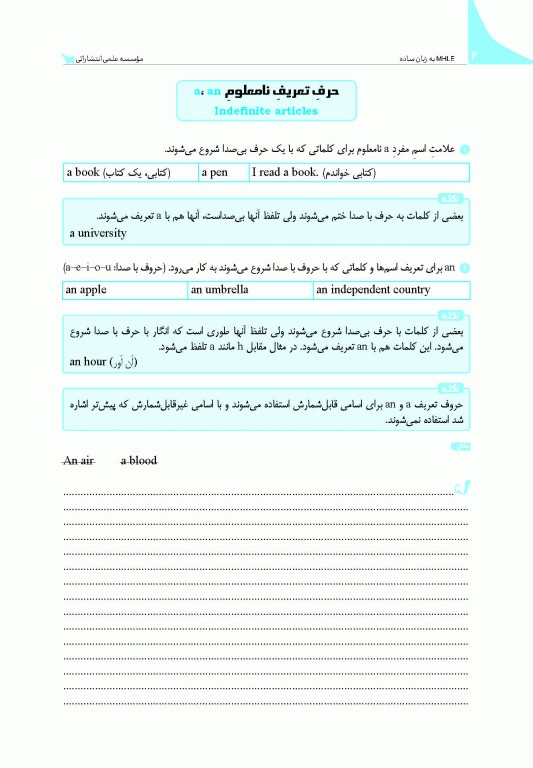 ۲
MHLE به زبان ساده
مؤسسه علمی انتشاراتی
حرفِ تعریفِ نامعلومِ a، an
Indefinite articles
۱ علامتِ اسمِ مفردِ a نامعلوم برای کلماتی که با یک حرف بی‌صدا شروع می‌شوند.
a book (کتابی، یک کتاب) a pen I read a book. (کتابی خواندم)
نکته
بعضی از کلمات به حرف با صدا ختم می‌شوند ولی تلفظ آنها بی‌صداست، آنها هم با a تعریف می‌شوند.
a university
۲ an برای تعریف اسم‌ها و کلماتی که با حروف با صدا شروع می‌شوند به کار می‌رود. (حروف با صدا: a-e-i-o-u)
an apple an umbrella an independent country
نکته
بعضی از کلمات با حرف بی‌صدا شروع می‌شوند ولی تلفظ آنها طوری است که انگار با حرف با صدا شروع
می‌شود. این کلمات هم با an تعریف می‌شود. در مثال مقابل h مانند a تلفظ می‌شود.
an hour (اَن آور)
نکته
حروف تعریف a و an برای اسامی قابل‌شمارش استفاده می‌شوند و با اسامی غیرقابل‌شمارش که پیش‌تر اشاره
شد استفاده نمی‌شوند.
مثال
An air a blood